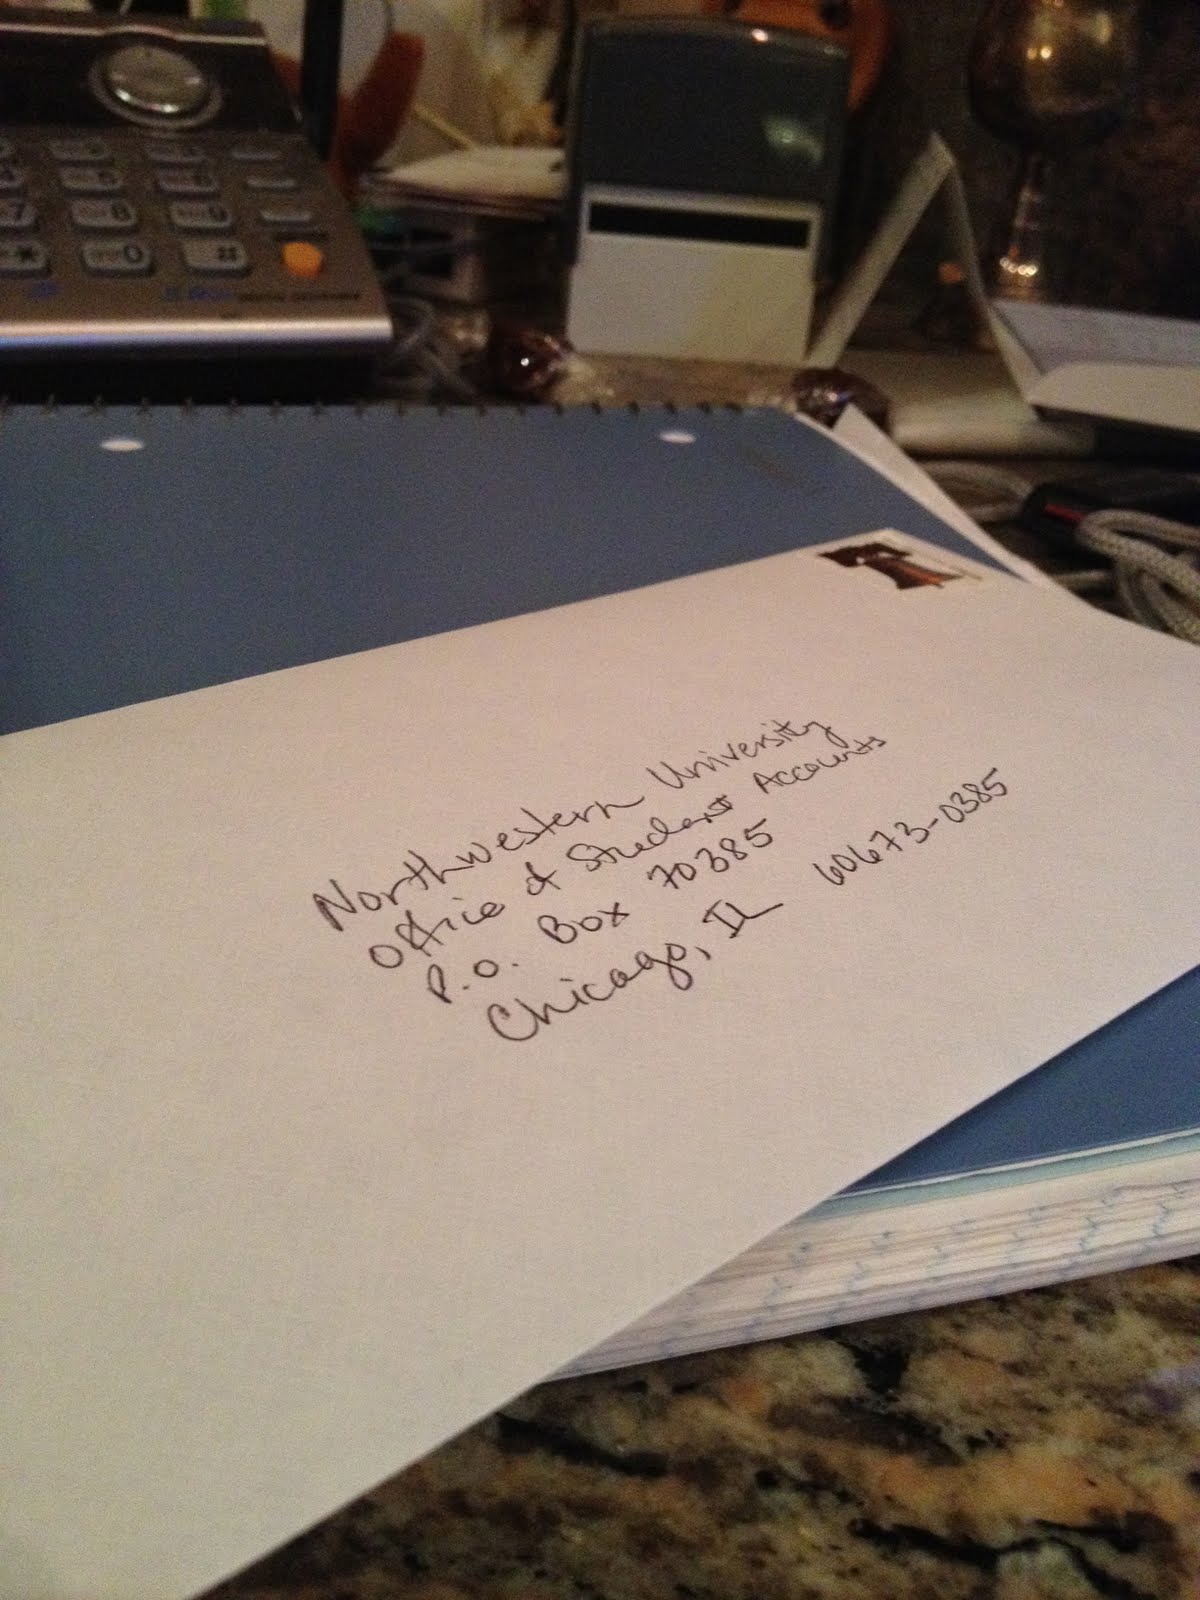 7 8 9
* 0 #
Northwestern University
Office of Student Accounts
P.O. Box 70385
Chicago, IL 60673-0385